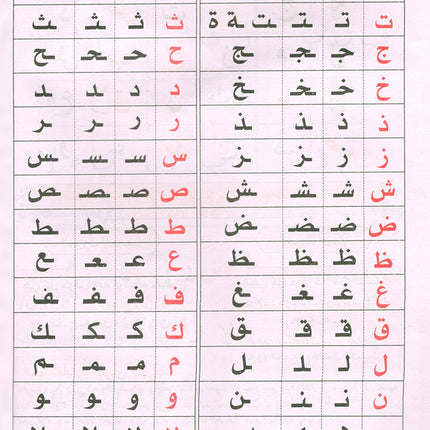 ت تـ ـتـ ـت ـة ة ث ثـ ـثـ ـث
ج جـ ـجـ ـج ح حـ ـحـ ـح
خ خـ ـخـ ـخ د د ـد ـد
ذ ذ ـذ ـذ ر ر ـر ـر
ز ز ـز ـز س سـ ـسـ ـس
ش شـ ـشـ ـش ص صـ ـصـ ـص
ض ضـ ـضـ ـض ط طـ ـطـ ـط
ظ ظـ ـظـ ـظ ع عـ ـعـ ـع
غ غـ ـغـ ـغ ف فـ ـفـ ـف
ق قـ ـقـ ـق ك كـ ـكـ ـك
ل لـ ـلـ ـل م مـ ـمـ ـم
ن نـ ـنـ ـن و و ـو ـو